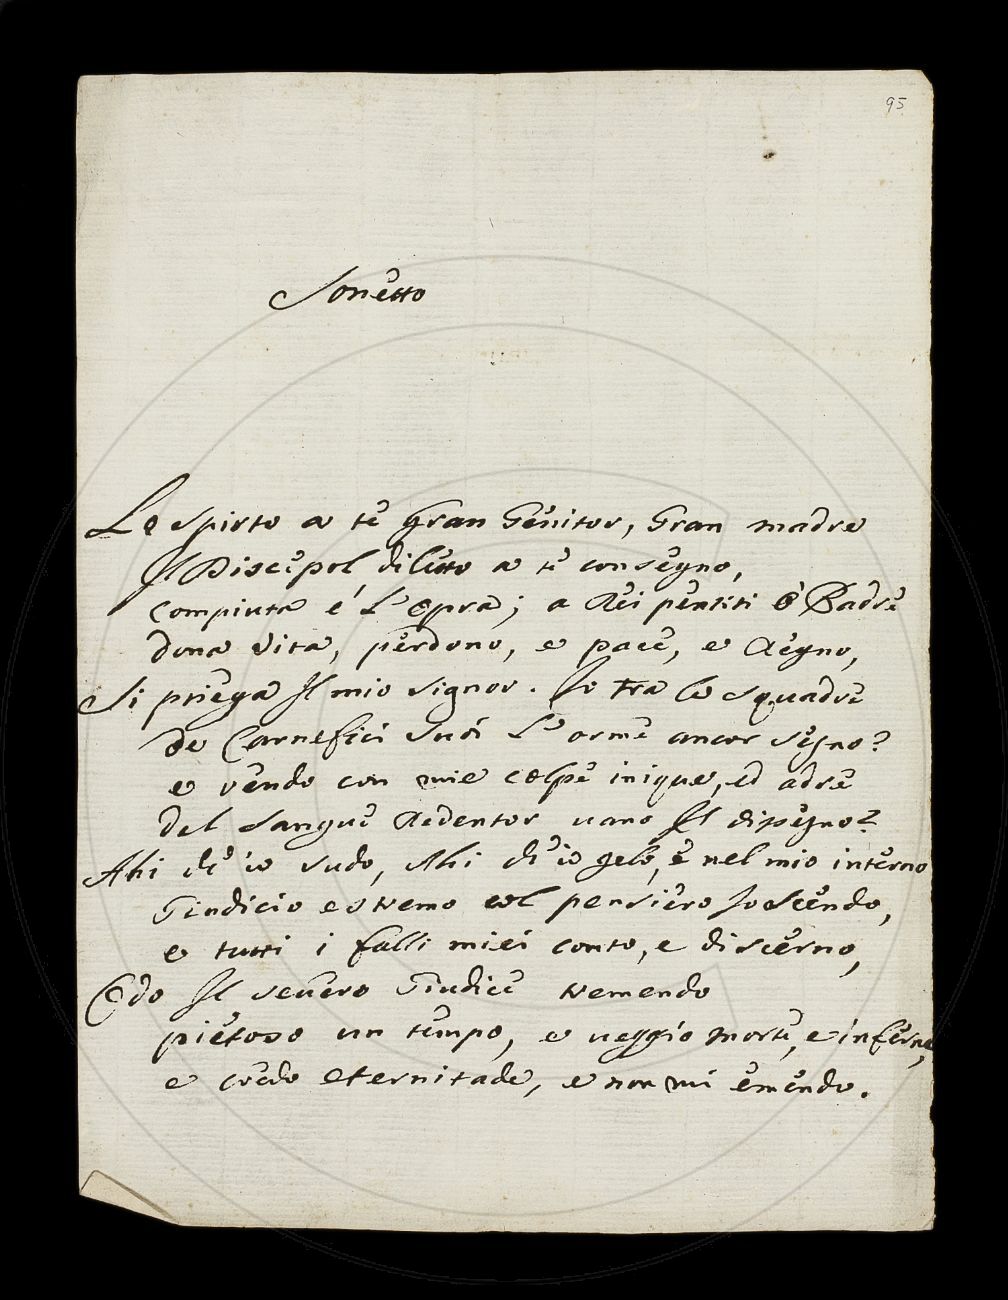 95
Sonetto
Lo spirto a te gran Genitor, Gran madre
Il Discepol diletto a te consegno,
compiuta é L'opra; a Rei pentiti ò Padre
dona vita, perdono, e pace, e Regno,
Si priega Il mio Signor. Io tra le squadre
de Carnefici suoi L'orme ancor segno?
e rendo con mie colpe inique, ed adre
del sangue Redentor vano Il disegno?
Ahi ch'io sudo, Ahi ch'io gelo, e nel mio interno
Giudicio estremo col pensiero Io scendo,
e tutti i falli miei conto, e discerno,
Odo Il severo Giudice tremendo
pietoso un tempo, e veggio morte, e inferno,
e credo eternitade, e non mi emendo.